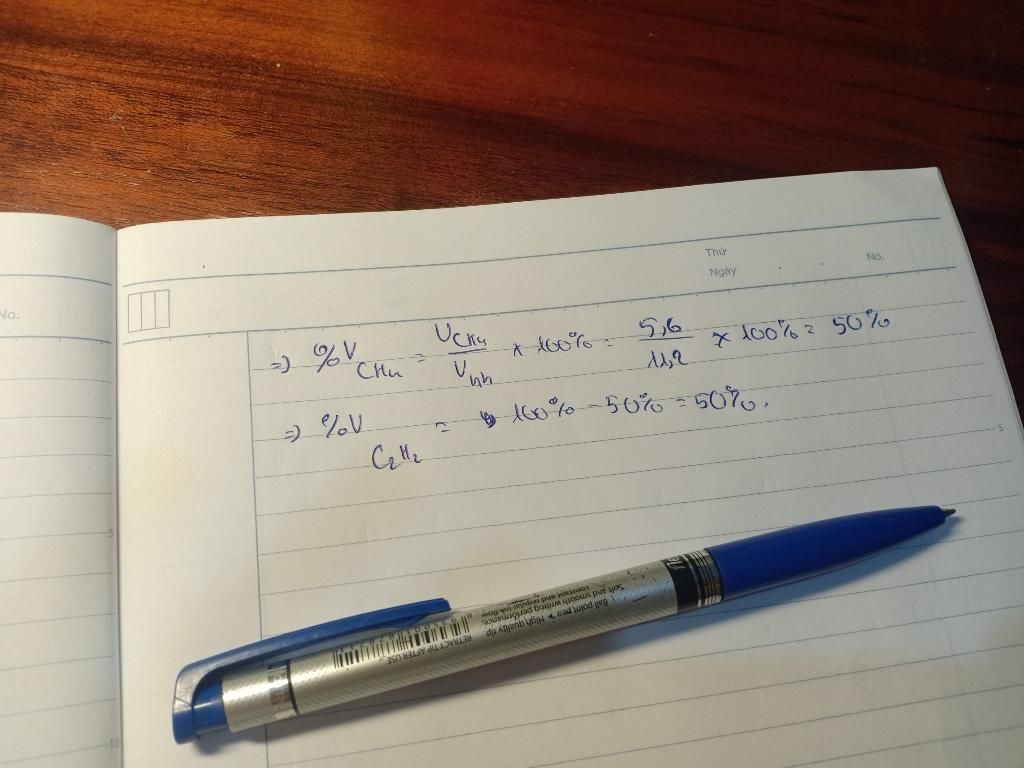 No.
Thứ
Ngày
No.
=> %V CH4 = VCH4 / Vhh x 100% = 5,6 / 11,2 x 100% = 50%
=> %V C2H2 = 100% - 50% = 50%.
5
5
10
Ball point pen > High quality tip
Soft and smooth writing performance,
constant and regular ink flow
RETRACT TIP AFTER USE